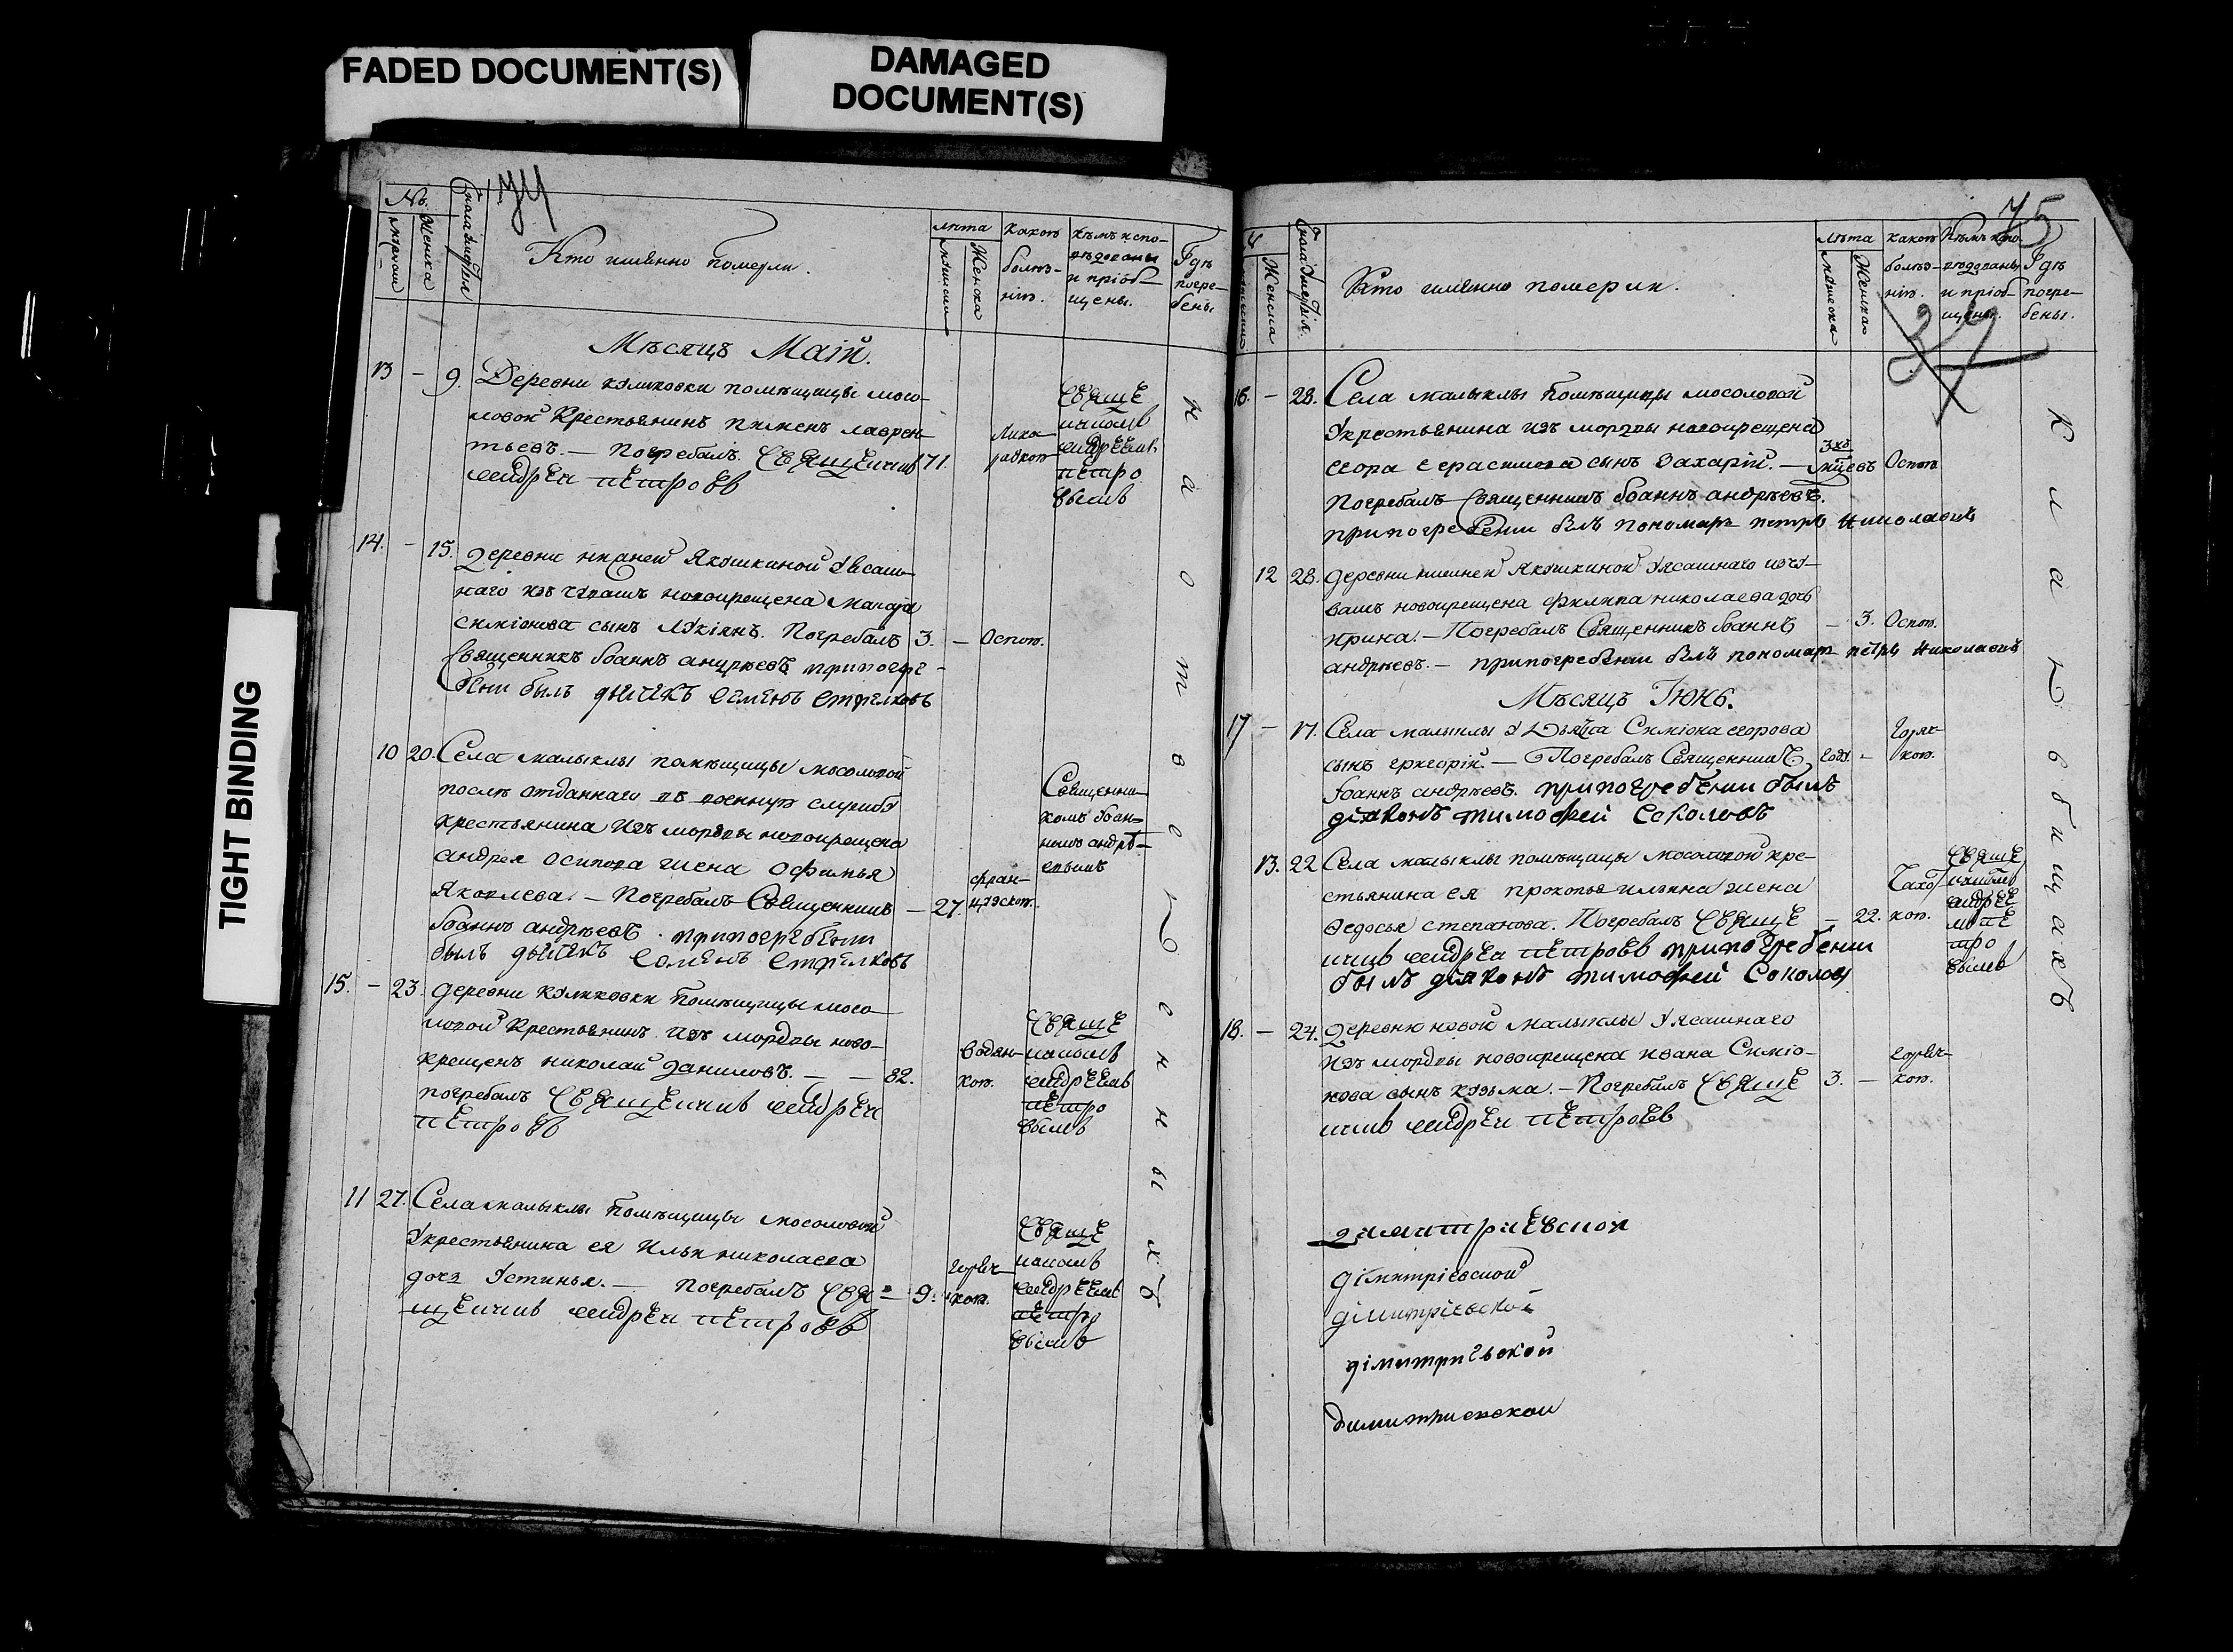 FADED DOCUMENT(S)
DAMAGED
DOCUMENT(S)
TIGHT BINDING
74
№
Женска
Кто имянно померли.
лѣта
Женска
Какою
болѣз-
нію.
Кѣмъ испо-
вѣдованы
и пріоб-
щены.
Гдѣ
погре-
бены
Мѣсяцъ Маій.
13 - 9. Деревни куликовки помѣщицы мосо-
ловой Крестьянинъ пименъ лаврен-
тьевъ. — Погребалъ. Священникъ 71.
андреи петровъ
Лихо-
радкою
Свяще
никомъ
андреемъ
петро
вымъ
14. - 15. Деревни нижней Якушкиной Уясаш-
наго изъ чувашъ новокрещена
симіонова сынъ Лукіянъ. Погребалъ 3. - Оспою.
Священникъ Іоаннъ андреевъ припогре-
бени былъ дьячекъ семенъ стрелковъ
10 20. Села малыклы помѣщицы мосоловой
послѣ отданнаго въ военную службу
крестьянина изъ мордвы новокрещена
андрея осипова жена Офимья
Яковлева. — Погребалъ Священникъ — 27.
Іоаннъ андреевъ. припогребении
былъ дьячекъ семенъ стрелковъ
фран-
цузскою.
Священни-
комъ Іоан-
номъ андрѣ-
евымъ
15. - 23. деревни куликовки Помѣщицы мосо-
ловой Крестьянинъ изъ мордвы ново-
крещенъ николай даниловъ. — — 82.
погребалъ Священникъ андреи
петровъ
Водян-
кою.
Свяще
никомъ
андреемъ
петро
вымъ
11 27. Села малыклы Помѣщицы мосоловой
Укрестьянина ея Ильи николаева
дочь Устинья. — Погребалъ Свя - 9.
щенникъ андреи петровъ
горяч-
кою.
Свяще
никомъ
андреемъ
петро
вымъ
На отведенныхъ
75
Женска
Кто имянно померли.
лѣта
Мужеска
Женска
какою
болѣз-
нію.
Кѣмъ испо-
вѣдованы
и пріоб-
щены.
Гдѣ
погре-
бены.
16. - 28. Села малыклы Помѣщицы мосоловой
Укрестьянина изъ мордвы новокрещена
егора герасимова сынъ Захарій. — 3хъ мцевъ Оспою
Погребалъ Священникъ Іоаннъ андрѣевъ.
припогребении былъ пономарь петръ николаевъ
12 28. деревни нижней Якушкиной Уясашнаго изъ чу-
вашъ новокрещена Филипа николаева дочь
ирина. — Погребалъ Священникъ Іоаннъ — 3. Оспою.
андрѣевъ. — припогребении былъ пономарь петръ николаевъ
Мѣсяцъ Іюнь.
17 - 17. Села малыклы У Симіона егорова
сынъ григорій. — Погребалъ Священникъ году. — горяч-
кою.
Іоаннъ андрѣевъ. припогребении былъ
діяконъ тимофей Соколовъ
13. 22 Села малыклы помѣщицы мосоловой кре-
стьянина ея прокопья ильина жена
Федосья степанова. Погребалъ Свяще — 22.
нникъ андреи петровъ припогребении
былъ діяконъ тимофей Соколовъ
Чахо-
кою.
Свяще
никомъ
андрее
мъ пе
тро
вымъ
18. - 24. Деревни новой малыклы Уясашнаго
изъ мордвы новокрещена ивана Симіо-
нова сынъ кузьма. — Погребалъ Свяще 3. — горяч-
кою.
нникъ андреи петровъ
Кладбищахъ
димитриевской
діимитріевской
димитріевской
димитриевской
димитриевской